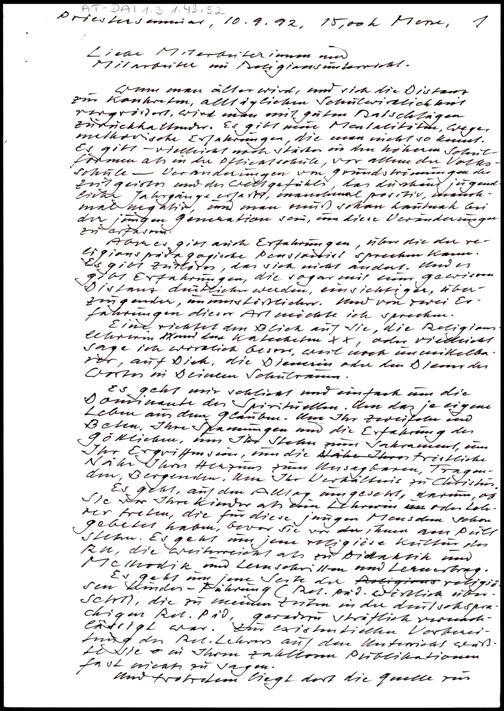 AT-DAI 1.3 1.43.52
Priesterseminar, 10.9.92, 15,00h Messe, 1
Liebe Mitarbeiterinnen und
Mitarbeiter im Religionsunterricht.
Wenn man älter wird, und sich die Distanz
zur konkreten, alltäglichen Schulwirklichkeit
vergrößert, wird man mit guten Ratschlägen
zurückhaltender. Es gibt neue Mentalitäten, Wege,
methodische Erfahrungen, die man nicht so kennt.
Es gibt - vielleicht noch stärker in den höheren Schul-
formen als in der Pflichtschule, vor allem der Volks-
schule - Veränderungen von Grundströmungen des
Zeitgeistes und des Weltgefühls, das durchaus jugend-
liche Jahrgänge erfaßt, manchmal positiv, manch-
mal negativ - und man muß schon hautnah bei
der jungen Generation sein, um diese Veränderungen
zu erfassen.
Aber es gibt auch Erfahrungen, über die der re-
ligionspädagogische Pensionist sprechen kann.
Es gibt Zeitloses, das sich nicht ändert. Und es
gibt Erfahrungen, die sogar mit einer gewissen
Distanz deutlicher werden, einsichtiger, über-
zeugender, unumstößlicher. Und von zwei Er-
fahrungen dieser Art möchte ich sprechen.
Eine richtet den Blick auf Sie, die Religions
lehrerin und den Katecheten XX, oder vielleicht
sage ich wirklich besser, weil noch unmittelba-
rer, auf Dich, die Dienerin oder den Diener des
Wortes in Deinem Schulraum.
Es geht mir schlicht und einfach um die
Dominante des Spirituellen. Um das je eigene
Leben aus dem Glauben. Um Ihr Zweifeln und
Beten, Ihre Spannungen und die Erfahrung des
Göttlichen, um Ihr Stehn zum Sakrament, um
Ihr Ergriffensein, um die Nähe Ihres
Nähe Ihres Herzens zum Unsagbaren, Tragen-
den, Bergenden. Um Ihr Verhältnis zu Christus.
Es geht, auf den Alltag umgesetzt, darum, ob
Sie vor Ihre Kinder als eine Lehrerin oder Leh-
rer treten, die für diese jungen Menschen schon
gebetet haben, bevor Sie vor ihnen am Pult
stehn. Es geht um jene religiöse Kultur des
RU, die weiterreicht als zu Didaktik und
Methodik und Lernschritten und Lernertrag.
Es geht um jene Seite der Religions religiö-
sen Kinder-Führung (Rel. päd. wörtlich über-
setzt), die zu meinen Zeiten in der deutschspra-
chigen Rel. Päd. geradezu sträflich vernach-
lässigt war. Zur existentiellen Vorberei-
tung des Rel. Lehrers auf den Unterricht wuß-
te sie in ihren zahllosen Publikationen
fast nichts zu sagen.
Und trotzdem liegt dort die Quelle zur